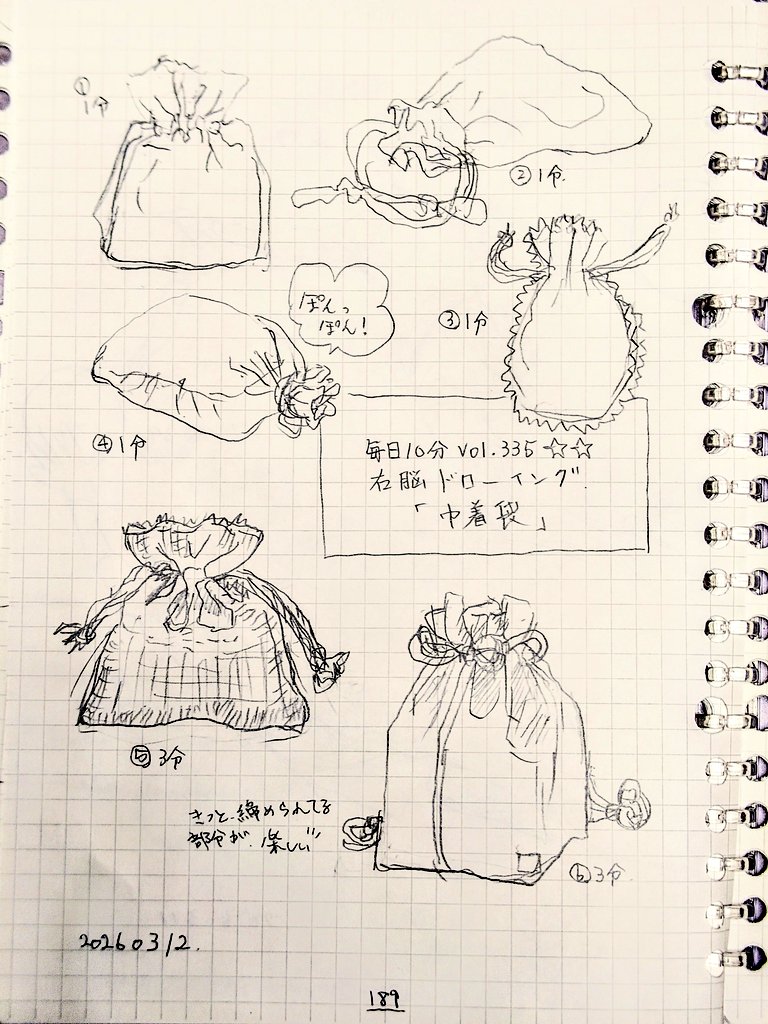 ① 1分
② 1分.
③ 1分
ぽんっ
ぽん!
④ 1分
毎日10分 vol.335 ☆☆
右脳ドローイング.
「巾着袋」
⑤ 3分
きっと、締められてる
部分が、楽しい
⑥ 3分.
20260312.
189